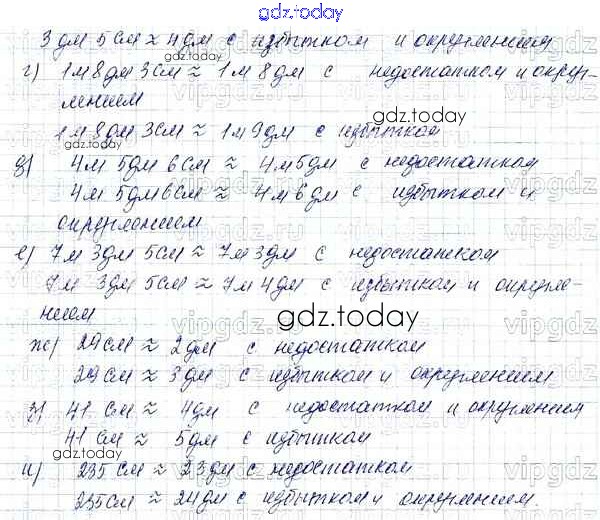 gdz.today
3 дм 5 см ≈ 4 дм с избытком и округлением
г) 1 м 8 дм 3 см ≈ 1 м 8 дм с недостатком и округ-
лением
gdz.today
1 м 8 дм 3 см ≈ 1 м 9 дм с избытком
д) 4 м 5 дм 6 см ≈ 4 м 5 дм с недостатком
4 м 5 дм 6 см ≈ 4 м 6 дм с избытком и
округлением
е) 7 м 3 дм 5 см ≈ 7 м 3 дм с недостатком
7 м 3 дм 5 см ≈ 7 м 4 дм с избытком и округле-
нием
gdz.today
ж) 29 см ≈ 2 дм с недостатком
29 см ≈ 3 дм с избытком и округлением
з) 41 см ≈ 4 дм с недостатком и округлением
41 см ≈ 5 дм с избытком
и) 235 см ≈ 23 дм с недостатком
235 см ≈ 24 дм с избытком и округлением.
gdz.today
vipgdz